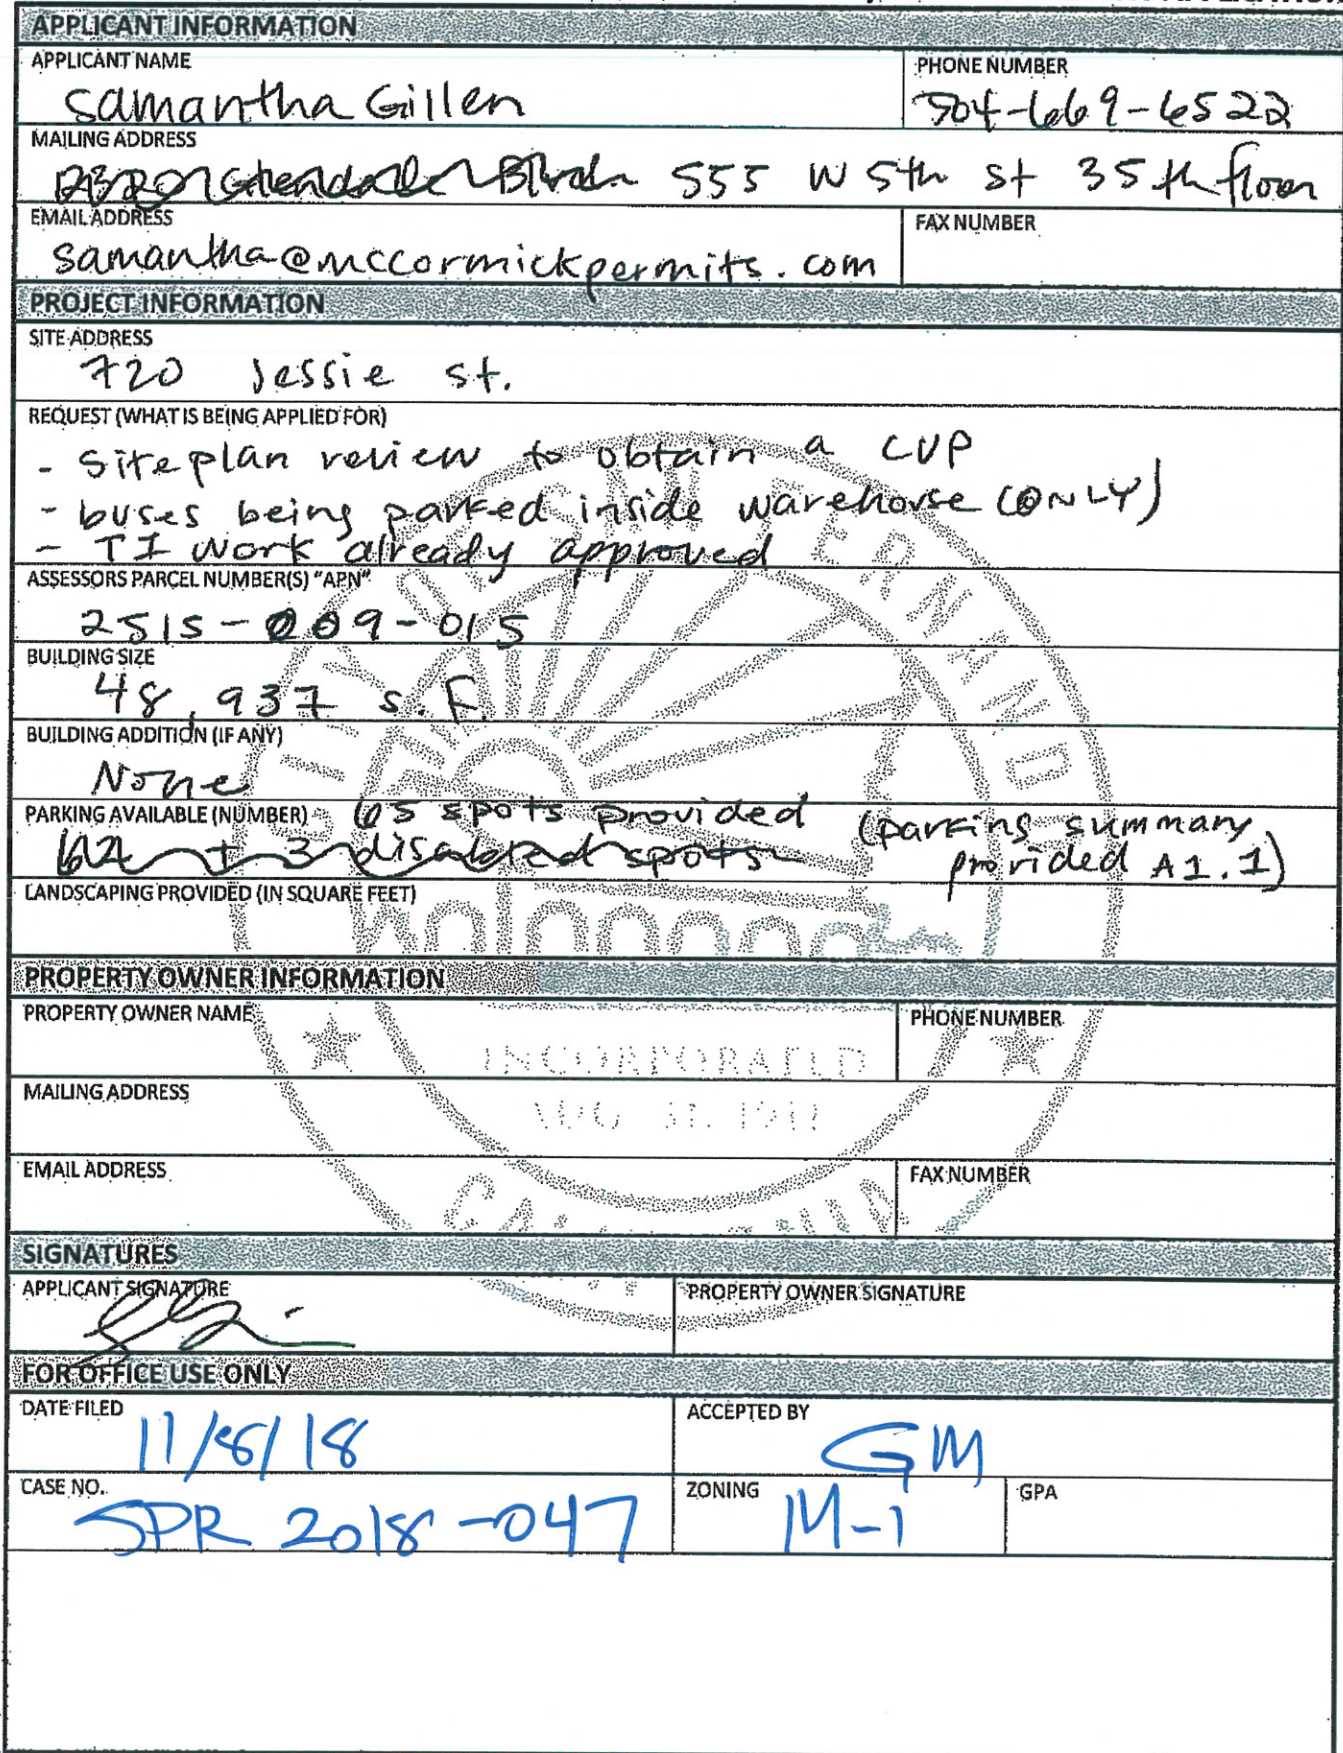 APPLICANT INFORMATION
APPLICANT NAME
Samantha Gillen
PHONE NUMBER
504-669-6522
MAILING ADDRESS
555 W 5th st 35th floor
EMAIL ADDRESS
samantha@mccormickpermits.com
FAX NUMBER
PROJECT INFORMATION
SITE ADDRESS
720 Jessie st.
REQUEST (WHAT IS BEING APPLIED FOR)
- Site plan review to obtain a CUP
- buses being parked inside warehouse (ONLY)
- TI work already approved
ASSESSORS PARCEL NUMBER(S) "APN"
2515-009-015
BUILDING SIZE
48,937 S.F.
BUILDING ADDITION (IF ANY)
None
PARKING AVAILABLE (NUMBER) 65 spots provided (parking summary
3 disabled spots provided A1.1)
LANDSCAPING PROVIDED (IN SQUARE FEET)
PROPERTY OWNER INFORMATION
PROPERTY OWNER NAME
PHONE NUMBER
INCORPORATED
AUG 31, 1911
MAILING ADDRESS
EMAIL ADDRESS
FAX NUMBER
SIGNATURES
APPLICANT SIGNATURE
PROPERTY OWNER SIGNATURE
FOR OFFICE USE ONLY
DATE FILED
11/8/18
ACCEPTED BY
GM
CASE NO.
SPR 2018-047
ZONING
M-1
GPA